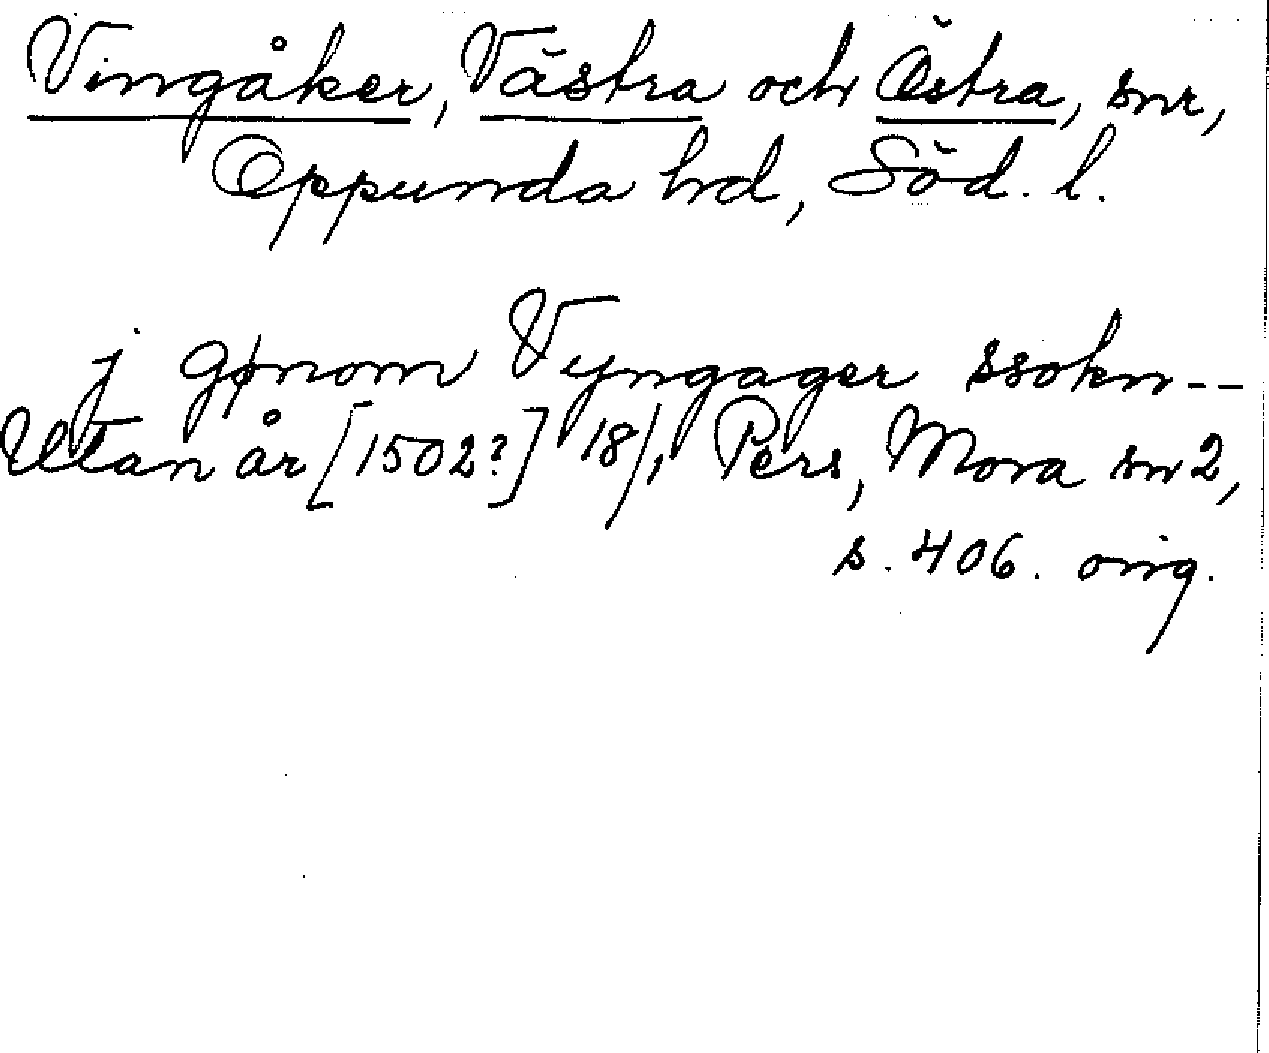 Vingåker, Västra och Östra, snr,
Oppunda hd, Söd. l.
j gønom Vyngager ssokn--
Utan år [1502?] 18/1 Pers, Mora sn 2,
s. 406. orig.